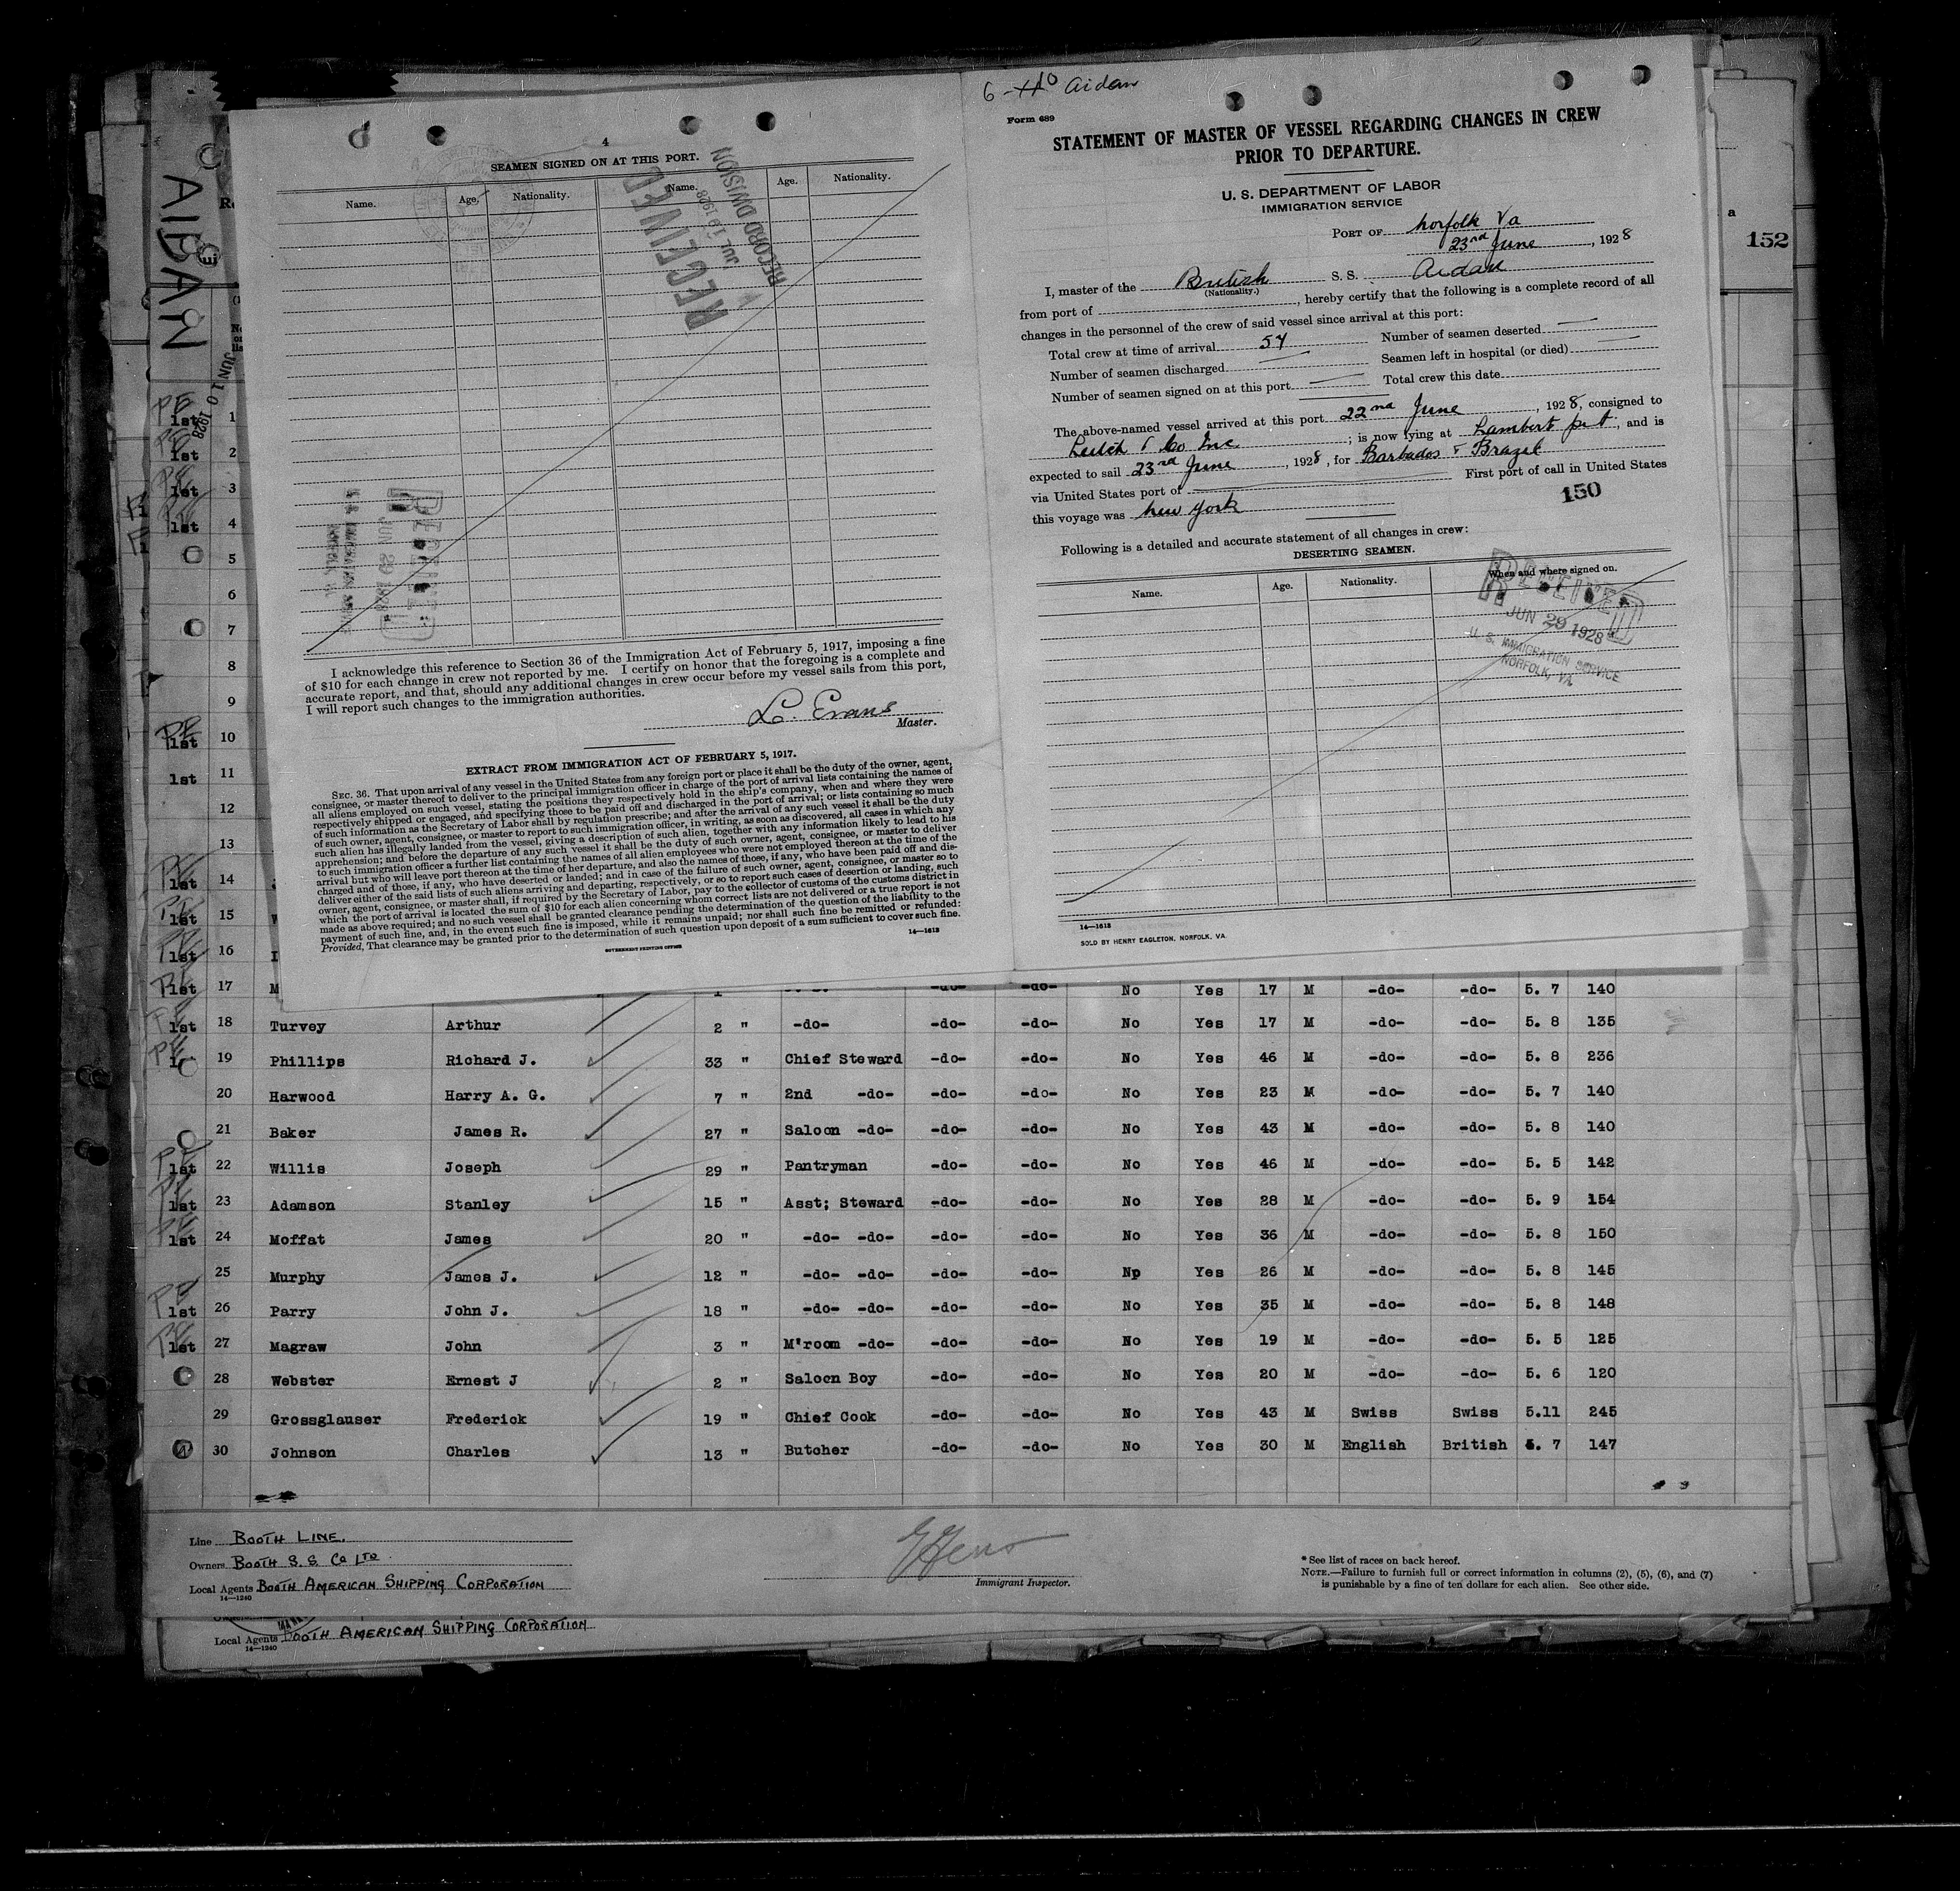 AIDAN
JUN 10 1928
152
4
SEAMEN SIGNED ON AT THIS PORT.
Name. Age. Nationality. Name. Age. Nationality.
RECEIVED
JUL 19 1928
RECORD DIVISION
RECEIVED
JUN 29 1928
I acknowledge this reference to Section 36 of the Immigration Act of February 5, 1917, imposing a fine
of $10 for each change in crew not reported by me. I certify on honor that the foregoing is a complete and
accurate report, and that, should any additional changes in crew occur before my vessel sails from this port,
I will report such changes to the immigration authorities.
L. Evans
Master.
EXTRACT FROM IMMIGRATION ACT OF FEBRUARY 5, 1917.
SEC. 36. That upon arrival of any vessel in the United States from any foreign port or place it shall be the duty of the owner, agent,
consignee, or master thereof to deliver to the principal immigration officer in charge of the port of arrival lists containing the names of
all aliens employed on such vessel, stating the positions they respectively hold in the ship's company, when and where they were
respectively shipped or engaged, and specifying those to be paid off and discharged in the port of arrival; or lists containing so much
of such information as the Secretary of Labor shall by regulation prescribe; and after the arrival of any such vessel it shall be the duty
of such owner, agent, consignee, or master to report to such immigration officer, in writing, as soon as discovered, all cases in which any
such alien has illegally landed from the vessel, giving a description of such alien, together with any information likely to lead to his
apprehension; and before the departure of any such vessel it shall be the duty of such owner, agent, consignee, or master to deliver
to such immigration officer a further list containing the names of all alien employees who were not employed thereon at the time of the
arrival but who will leave port thereon at the time of her departure, and also the names of those, if any, who have been paid off and dis-
charged and of those, if any, who have deserted or landed; and in case of the failure of such owner, agent, consignee, or master so to
deliver either of the said lists of such aliens arriving and departing, respectively, or so to report such cases of desertion or landing, such
owner, agent, consignee, or master shall, if required by the Secretary of Labor, pay to the collector of customs of the customs district in
which the port of arrival is located the sum of $10 for each alien concerning whom correct lists are not delivered or a true report is not
made as above required; and no such vessel shall be granted clearance pending the determination of the question of the liability to the
payment of such fine, and, in the event such fine is imposed, while it remains unpaid; nor shall such fine be remitted or refunded:
Provided, That clearance may be granted prior to the determination of such question upon deposit of a sum sufficient to cover such fine.
GOVERNMENT PRINTING OFFICE
14—1613
Aidan
Form 689
STATEMENT OF MASTER OF VESSEL REGARDING CHANGES IN CREW
PRIOR TO DEPARTURE.
U. S. DEPARTMENT OF LABOR
IMMIGRATION SERVICE
PORT OF Norfolk Va
23rd June, 1928
I, master of the British S. S. Aidan
(Nationality.)
from port of , hereby certify that the following is a complete record of all
changes in the personnel of the crew of said vessel since arrival at this port:
Total crew at time of arrival 54 Number of seamen deserted —
Number of seamen discharged — Seamen left in hospital (or died) —
Number of seamen signed on at this port — Total crew this date
The above-named vessel arrived at this port 22nd June, 1928, consigned to
Leitch & Co Inc ; is now lying at Lambert pt, and is
expected to sail 23rd June, 1928, for Barbados & Brazil
via United States port of First port of call in United States
this voyage was New York
150
Following is a detailed and accurate statement of all changes in crew:
DESERTING SEAMEN.
Name. Age. Nationality. When and where signed on.
RECEIVED
JUN 29 1928
U. S. IMMIGRATION SERVICE
NORFOLK, VA
14—1613
SOLD BY HENRY EAGLETON, NORFOLK, VA.
1st 1
1st 2
1st 3
1st 4
5
6
7
8
9
1st 10
1st 11
12
13
1st 14
1st 15
1st 16
1st 17 -do- -do- No Yes 17 M -do- -do- 5. 7 140
1st 18 Turvey Arthur 2 " -do- -do- -do- No Yes 17 M -do- -do- 5. 8 135
19 Phillips Richard J. 33 " Chief Steward -do- -do- No Yes 46 M -do- -do- 5. 8 236
20 Harwood Harry A. G. 7 " 2nd -do- -do- -do- No Yes 23 M -do- -do- 5. 7 140
21 Baker James R. 27 " Saloon -do- -do- -do- No Yes 43 M -do- -do- 5. 8 140
1st 22 Willis Joseph 29 " Pantryman -do- -do- No Yes 46 M -do- -do- 5. 5 142
1st 23 Adamson Stanley 15 " Asst; Steward -do- -do- No Yes 28 M -do- -do- 5. 9 154
1st 24 Moffat James 20 " -do- -do- -do- -do- No Yes 36 M -do- -do- 5. 8 150
25 Murphy James J. 12 " -do- -do- -do- -do- Np Yes 26 M -do- -do- 5. 8 145
1st 26 Parry John J. 18 " -do- -do- -do- -do- No Yes 35 M -do- -do- 5. 8 148
1st 27 Magraw John 3 " M'room -do- -do- -do- No Yes 19 M -do- -do- 5. 5 125
28 Webster Ernest J 2 " Saloon Boy -do- -do- No Yes 20 M -do- -do- 5. 6 120
29 Grossglauser Frederick 19 " Chief Cook -do- -do- No Yes 43 M Swiss Swiss 5.11 245
30 Johnson Charles 13 " Butcher -do- -do- No Yes 30 M English British 5. 7 147
Line BOOTH LINE.
Owners BOOTH S. S. Co LTD
Local Agents BOOTH AMERICAN SHIPPING CORPORATION
14—1240
Immigrant Inspector.
* See list of races on back hereof.
NOTE.—Failure to furnish full or correct information in columns (2), (5), (6), and (7)
is punishable by a fine of ten dollars for each alien. See other side.
Local Agents BOOTH AMERICAN SHIPPING CORPORATION
14—1240